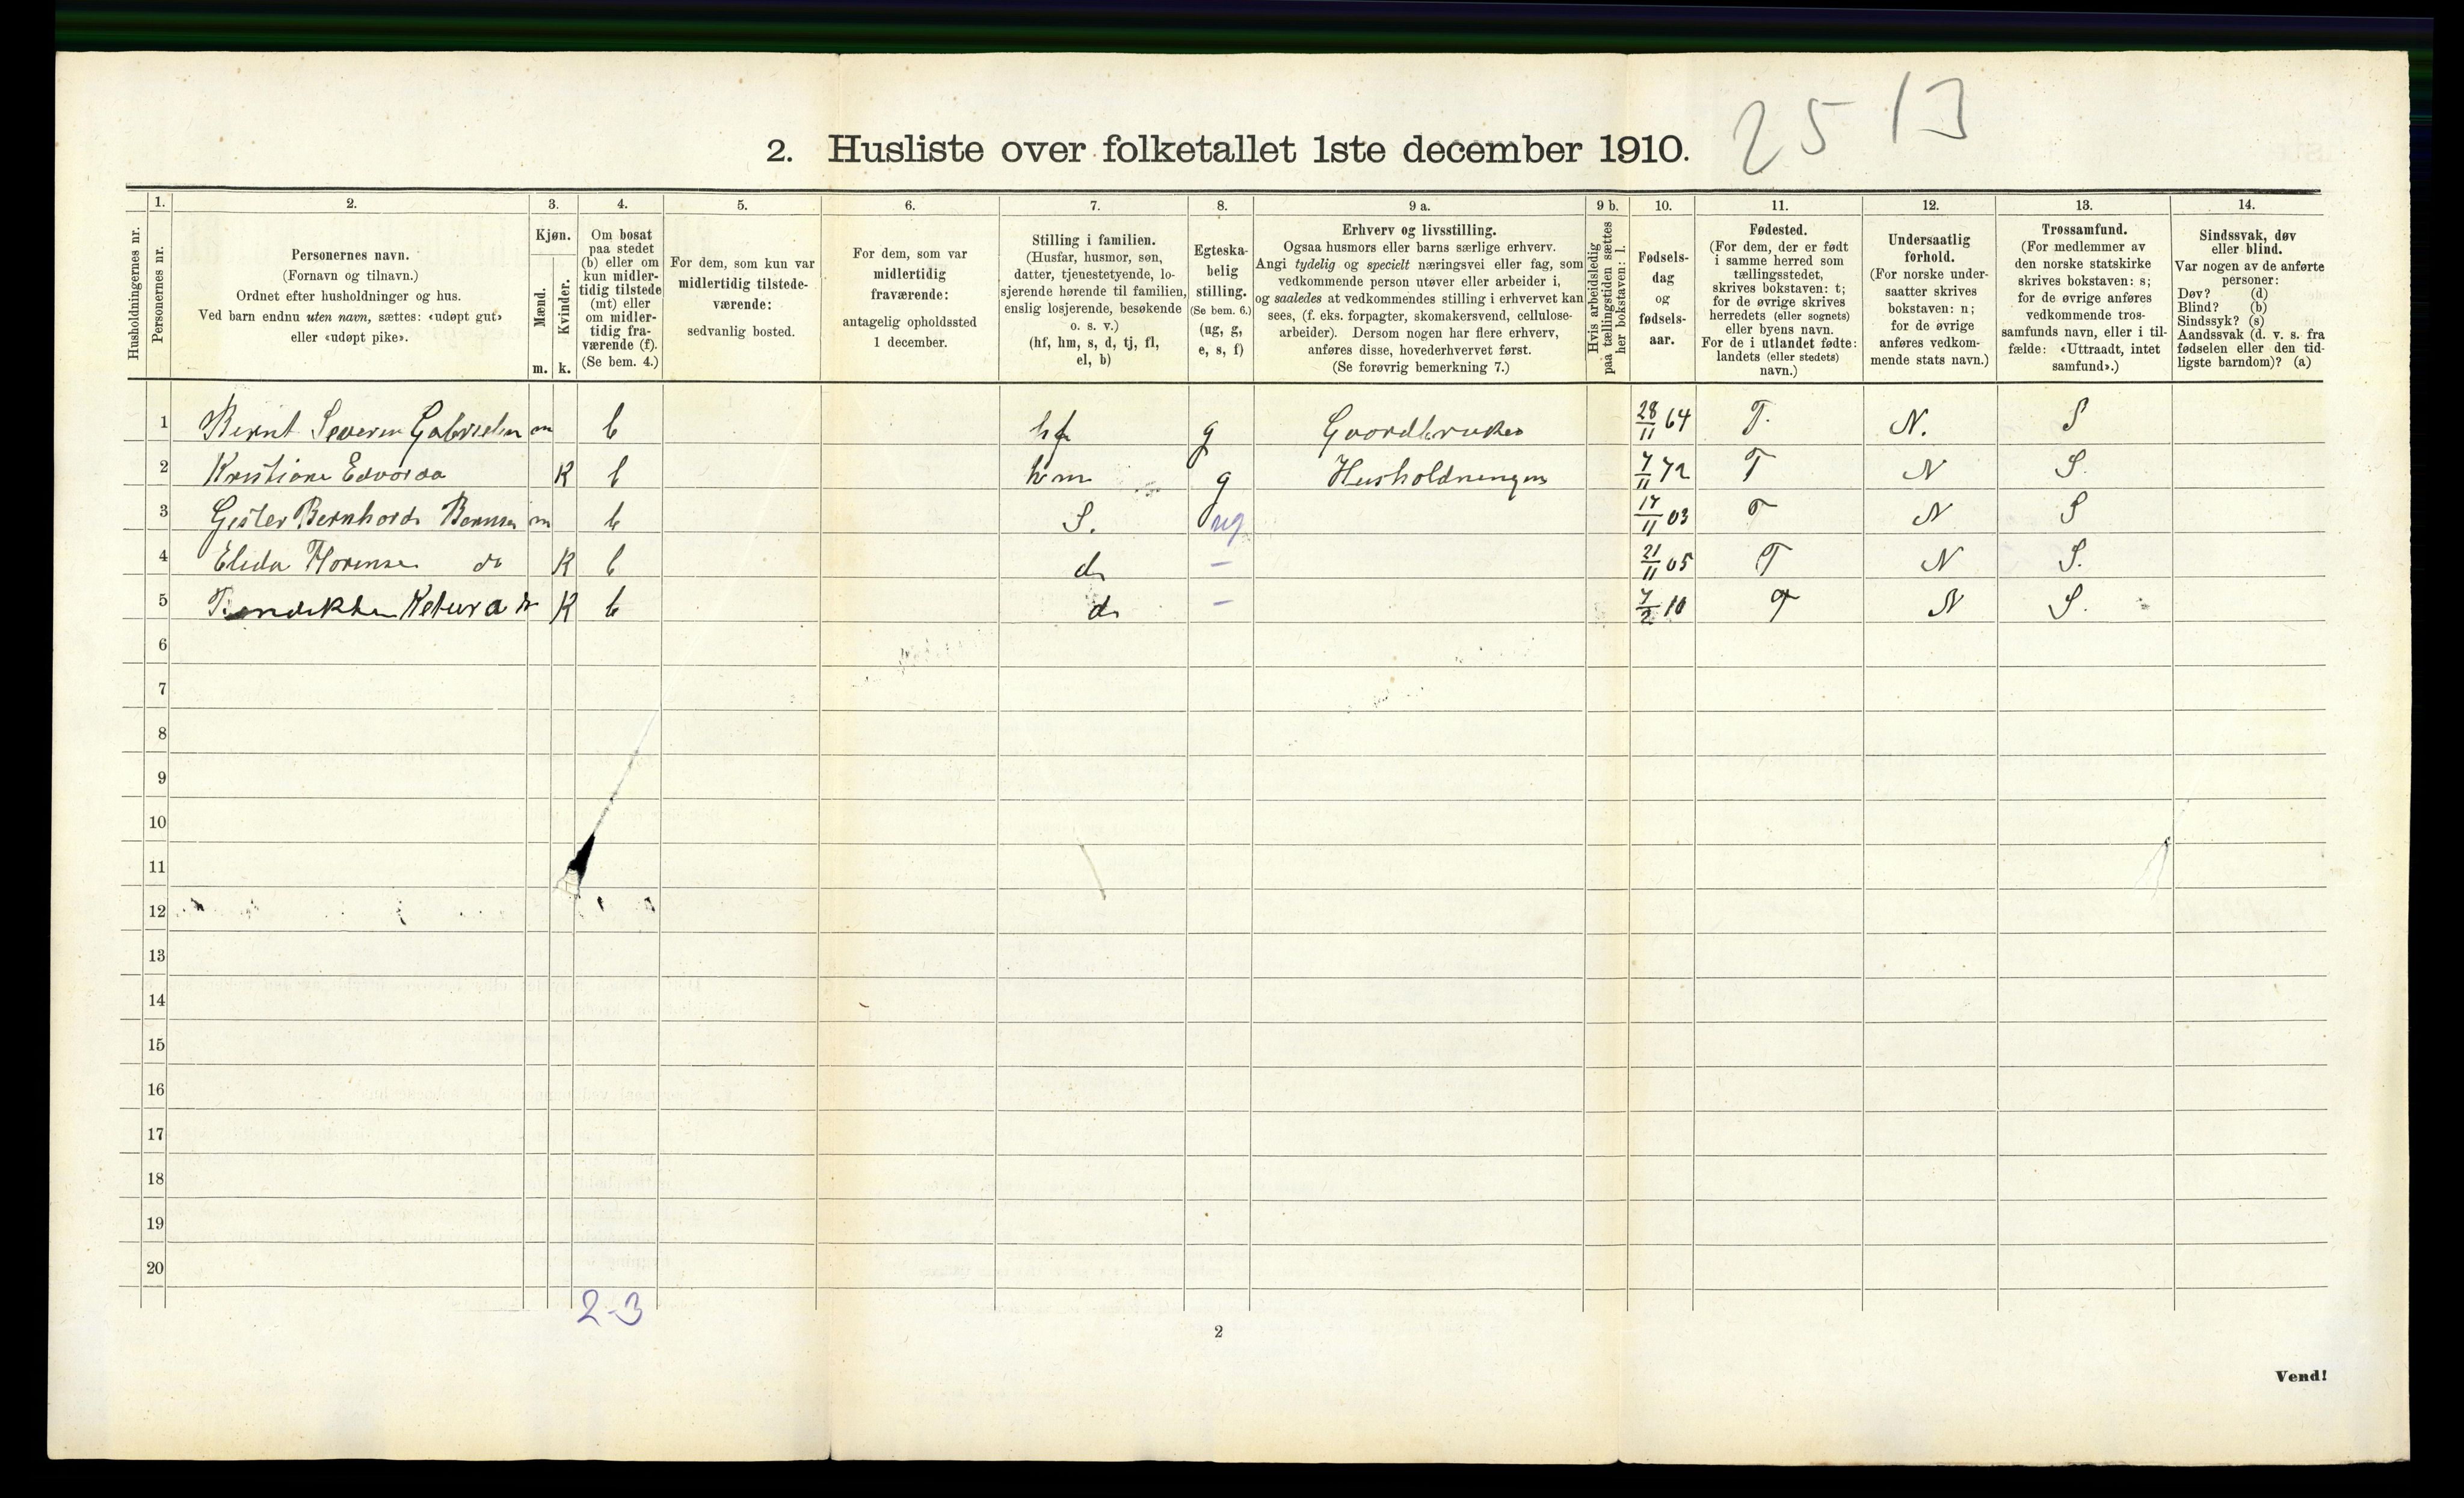 25 13
2. Husliste over folketallet 1ste december 1910.
Husholdningernes nr.
1. Personernes nr.
2. Personernes navn. (Fornavn og tilnavn.) Ordnet efter husholdninger og hus. Ved barn endnu uten navn, sættes: «udøpt gut» eller «udøpt pike».
3. Kjøn. Mænd. m. Kvinder. k.
4. Om bosat paa stedet (b) eller om kun midlertidig tilstede (mt) eller om midlertidig fraværende (f). (Se bem. 4.)
5. For dem, som kun var midlertidig tilstedeværende: sedvanlig bosted.
6. For dem, som var midlertidig fraværende: antagelig opholdssted 1 december.
7. Stilling i familien. (Husfar, husmor, søn, datter, tjenestetyende, losjerende hørende til familien, enslig losjerende, besøkende o. s. v.) (hf, hm, s, d, tj, fl, el, b)
8. Egteskabelig stilling. (Se bem. 6.) (ug, g, e, s, f)
9 a. Erhverv og livsstilling. Ogsaa husmors eller barns særlige erhverv. Angi tydelig og specielt næringsvei eller fag, som vedkommende person utøver eller arbeider i, og saaledes at vedkommendes stilling i erhvervet kan sees, (f. eks. forpagter, skomakersvend, cellulosearbeider). Dersom nogen har flere erhverv, anføres disse, hovederhvervet først. (Se forøvrig bemerkning 7.)
9 b. Hvis arbeidsledig paa tællingstiden sættes her bokstaven: l.
10. Fødselsdag og fødselsaar.
11. Fødested. (For dem, der er født i samme herred som tællingsstedet, skrives bokstaven: t; for de øvrige skrives herredets (eller sognets) eller byens navn. For de i utlandet fødte: landets (eller stedets) navn.)
12. Undersaatlig forhold. (For norske undersaatter skrives bokstaven: n; for de øvrige anføres vedkommende stats navn.)
13. Trossamfund. (For medlemmer av den norske statskirke skrives bokstaven: s; for de øvrige anføres vedkommende trossamfunds navn, eller i tilfælde: «Uttraadt, intet samfund».)
14. Sindssvak, døv eller blind. Var nogen av de anførte personer: Døv? (d) Blind? (b) Sindssyk? (s) Aandssvak (d. v. s. fra fødselen eller den tidligste barndom)? (a)
1 Bernt Severin Gabrielsen m b hf g Gaardbruker 28/11 64 T. N. S
2 Kristiane Edvarda K b hm g Husholdningen 7/11 72 T N S.
3 Bernhard m b S. ug 17/11 03 T N S
4 Elida do K b d. - 21/11 05 T N S.
5 Ketura do K b d. - 7/2 10 T N S.
6
7
8
9
10
11
12
13
14
15
16
17
18
19
20
2-3
2
Vend!